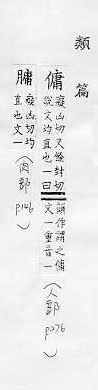 類篇
傭
癡凶切又餘封切
說文均直也一曰
作謂之傭
文一重音一(人部 p276)
𦟛
癡凶切均
直也文一(肉部 p146)